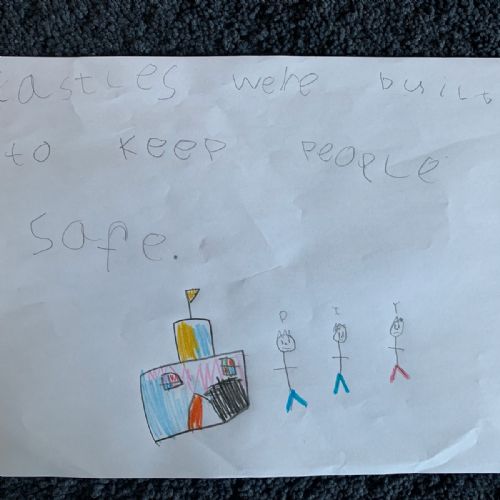 Castles were built
to keep people
safe.
P I Y